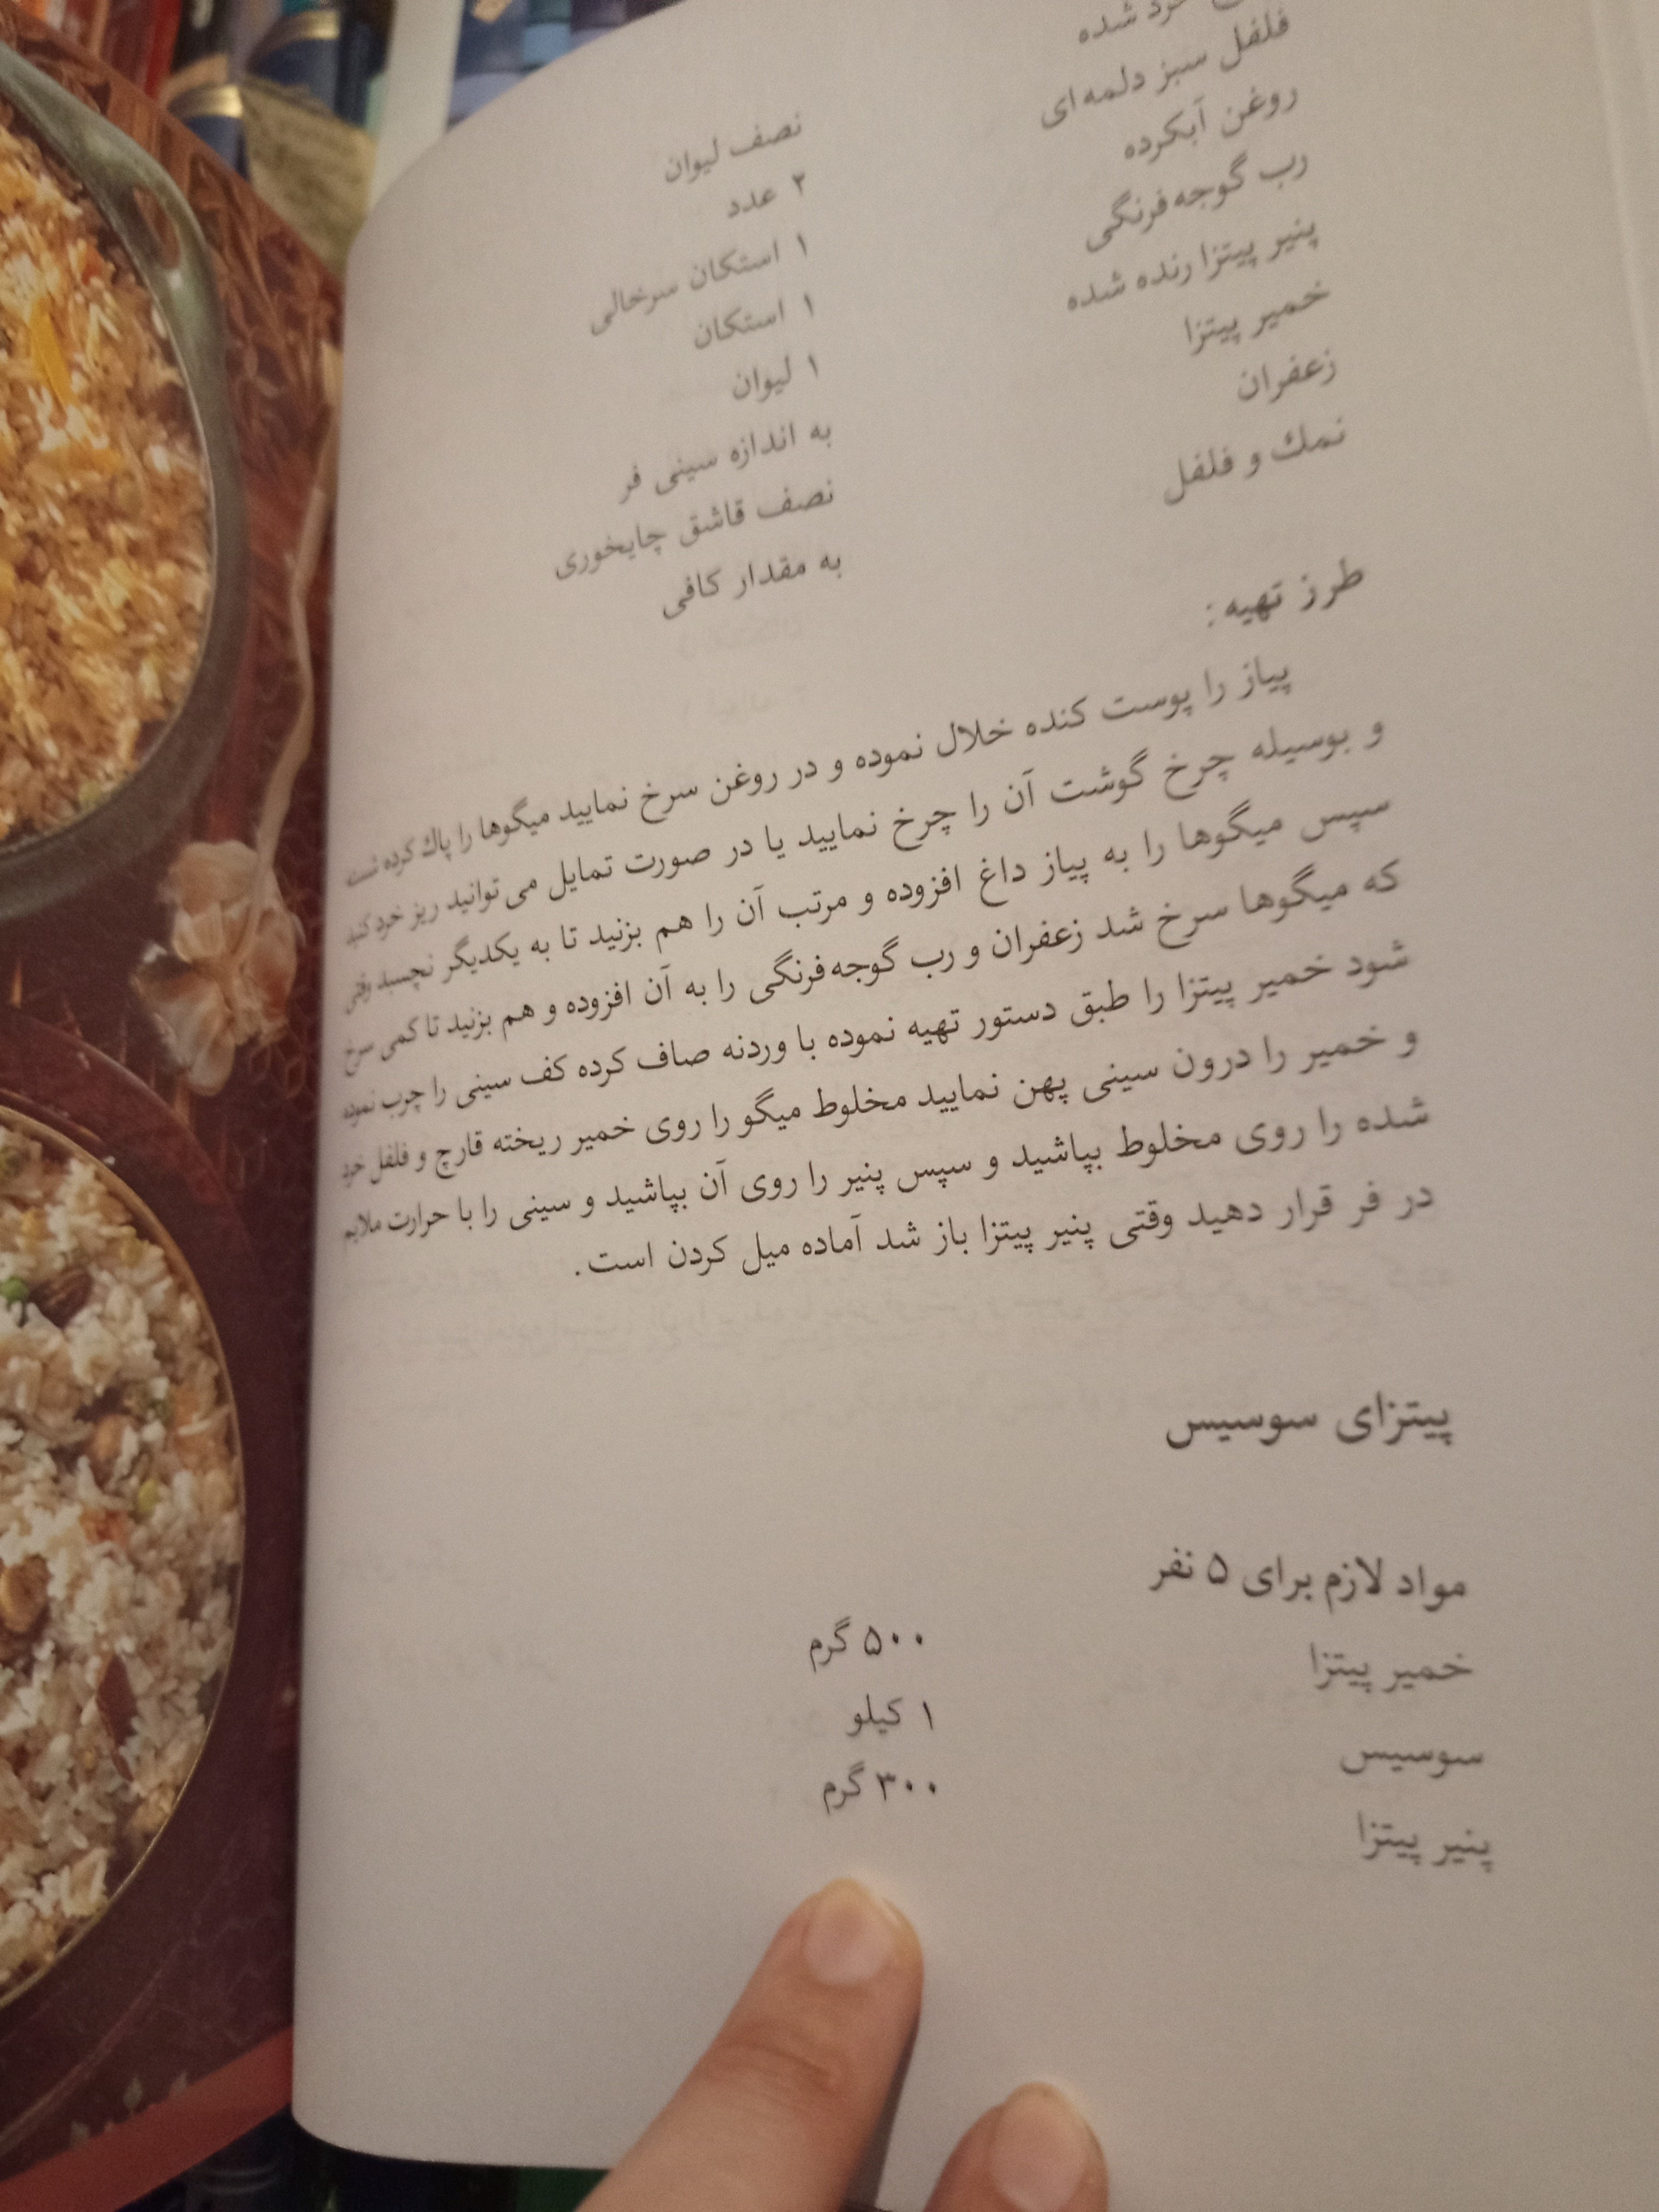 خرد شده نصف لیوان
فلفل سبز دلمه‌ای ۲ عدد
روغن آبکرده ۱ استکان سرخالی
رب گوجه‌فرنگی ۱ استکان
پنیر پیتزا رنده شده ۱ لیوان
خمیر پیتزا به اندازه سینی فر
زعفران نصف قاشق چایخوری
نمك و فلفل به مقدار کافی
طرز تهیه:
پیاز را پوست کنده خلال نموده و در روغن سرخ نمایید میگوها را پاك کرده
و بوسیله چرخ گوشت آن را چرخ نمایید یا در صورت تمایل می‌توانید ریز خرد کنید
سپس میگوها را به پیاز داغ افزوده و مرتب آن را هم بزنید تا به یکدیگر نچسبد وقتی
که میگوها سرخ شد زعفران و رب گوجه‌فرنگی را به آن افزوده و هم بزنید تا کمی سرخ
شود خمیر پیتزا را طبق دستور تهیه نموده با وردنه صاف کرده کف سینی را چرب نموده
و خمیر را درون سینی پهن نمایید مخلوط میگو را روی خمیر ریخته قارچ و فلفل خرد
شده را روی مخلوط بپاشید و سپس پنیر را روی آن بپاشید و سینی را با حرارت ملایم
در فر قرار دهید وقتی پنیر پیتزا باز شد آماده میل کردن است.
پیتزای سوسیس
مواد لازم برای ۵ نفر
خمیر پیتزا ۵۰۰ گرم
سوسیس ۱ کیلو
پنیر پیتزا ۳۰۰ گرم